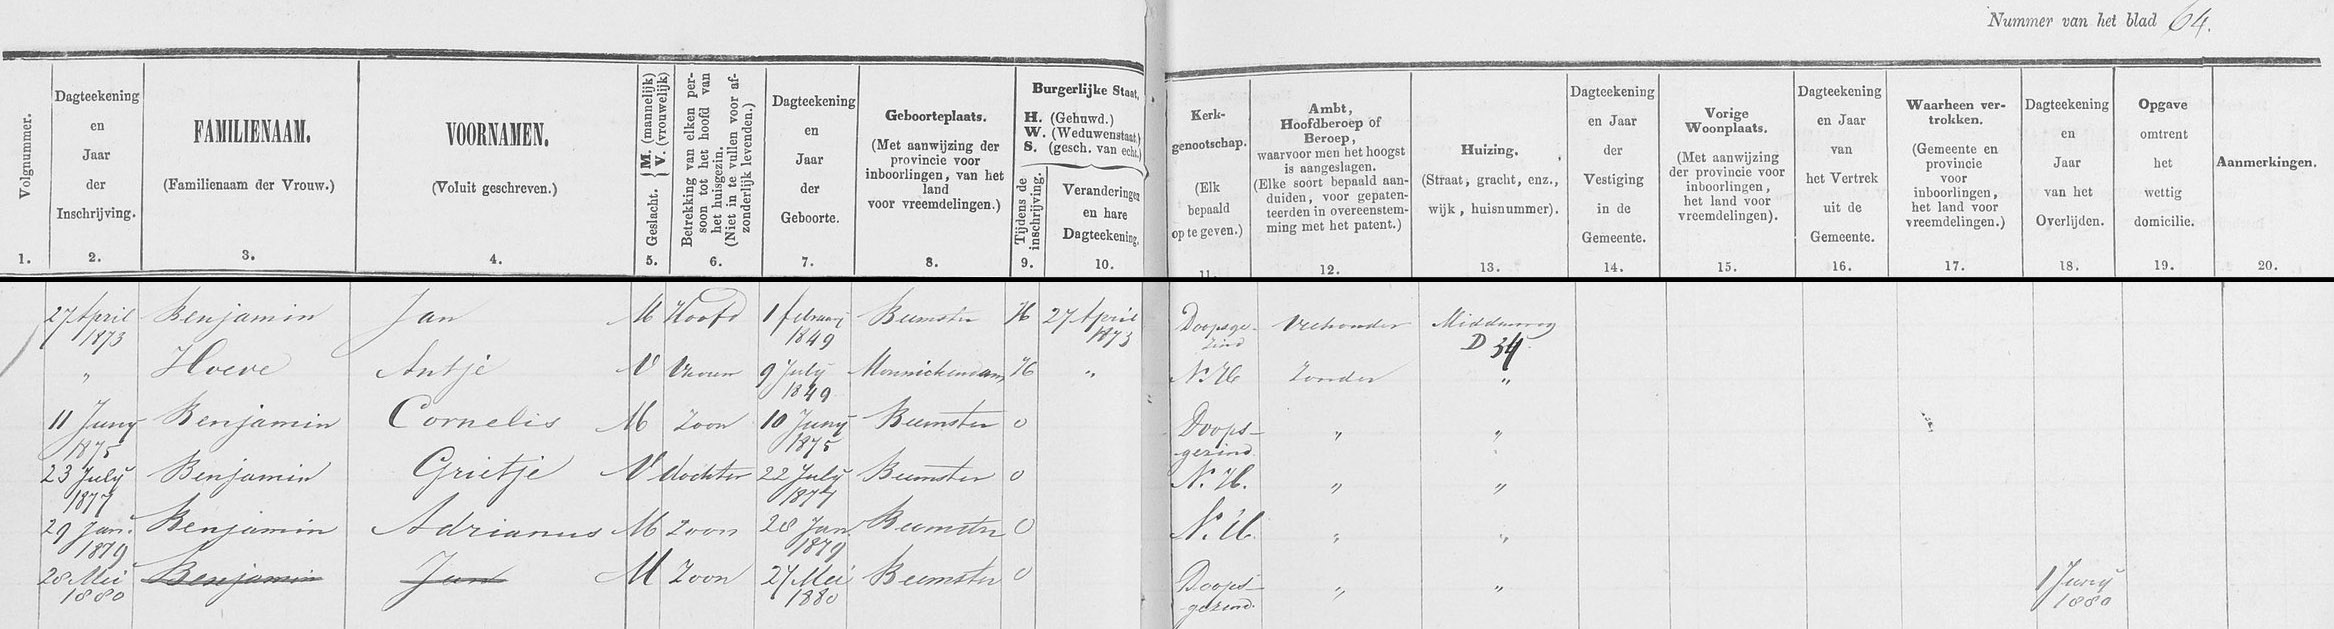 Nummer van het blad 64.
Volgnummer.
1.
Dagteekening
en
Jaar
der
Inschrijving.
2.
FAMILIENAAM.
(Familienaam der Vrouw.)
3.
VOORNAMEN.
(Voluit geschreven.)
4.
Geslacht. { M. (mannelijk)
V. (vrouwelijk)
5.
Betrekking van elken per-
soon tot het hoofd van
het huisgezin.
(Niet in te vullen voor af-
zonderlijk levenden.)
6.
Dagteekening
en
Jaar
der
Geboorte.
7.
Geboorteplaats.
(Met aanwijzing der
provincie voor
inboorlingen, van het
land
voor vreemdelingen.)
8.
Burgerlijke Staat,
H. (Gehuwd.)
W. (Weduwenstaat)
S. (gesch. van echt.)
Tijdens de
inschrijving.
9.
Veranderingen
en hare
Dagteekening.
10.
Kerk-
genootschap.
(Elk
bepaald
op te geven.)
11.
Ambt,
Hoofdberoep of
Beroep,
waarvoor men het hoogst
is aangeslagen.
(Elke soort bepaald aan-
duiden, voor gepaten-
teerden in overeenstem-
ming met het patent.)
12.
Huizing.
(Straat, gracht, enz.,
wijk, huisnummer).
13.
Dagteekening
en Jaar
der
Vestiging
in de
Gemeente.
14.
Vorige
Woonplaats.
(Met aanwijzing
der provincie voor
inboorlingen,
het land voor
vreemdelingen).
15.
Dagteekening
en Jaar
van
het Vertrek
uit de
Gemeente.
16.
Waarheen ver-
trokken.
(Gemeente en
provincie
voor
inboorlingen,
het land voor
vreemdelingen.)
17.
Dagteekening
en
Jaar
van het
Overlijden.
18.
Opgave
omtrent
het
wettig
domicilie.
19.
Aanmerkingen.
20.
27 April Benjamin Jan M Hoofd 1 februarij Beemster H 27 April Doopsge- Veehouder Middenweg
1873 1849 1873 zind D 34
„ Hoeve Antje V Vrouw 9 July Monnickendam H „ N. H. Zonder „
1849
11 Juny Benjamin Cornelis M Zoon 10 Juny Beemster O Doops- „ „
1875 1875 gezind
23 July Benjamin Grietje V dochter 22 July Beemster O N. H. „ „
1877 1877
29 Jan. Benjamin Adrianus M Zoon 28 Jan. Beemster O N. H. „ „
1879 1879
28 Mei Benjamin Jan M Zoon 27 Mei Beemster O Doops- „ „ 1 Juny
1880 1880 gezind. 1880